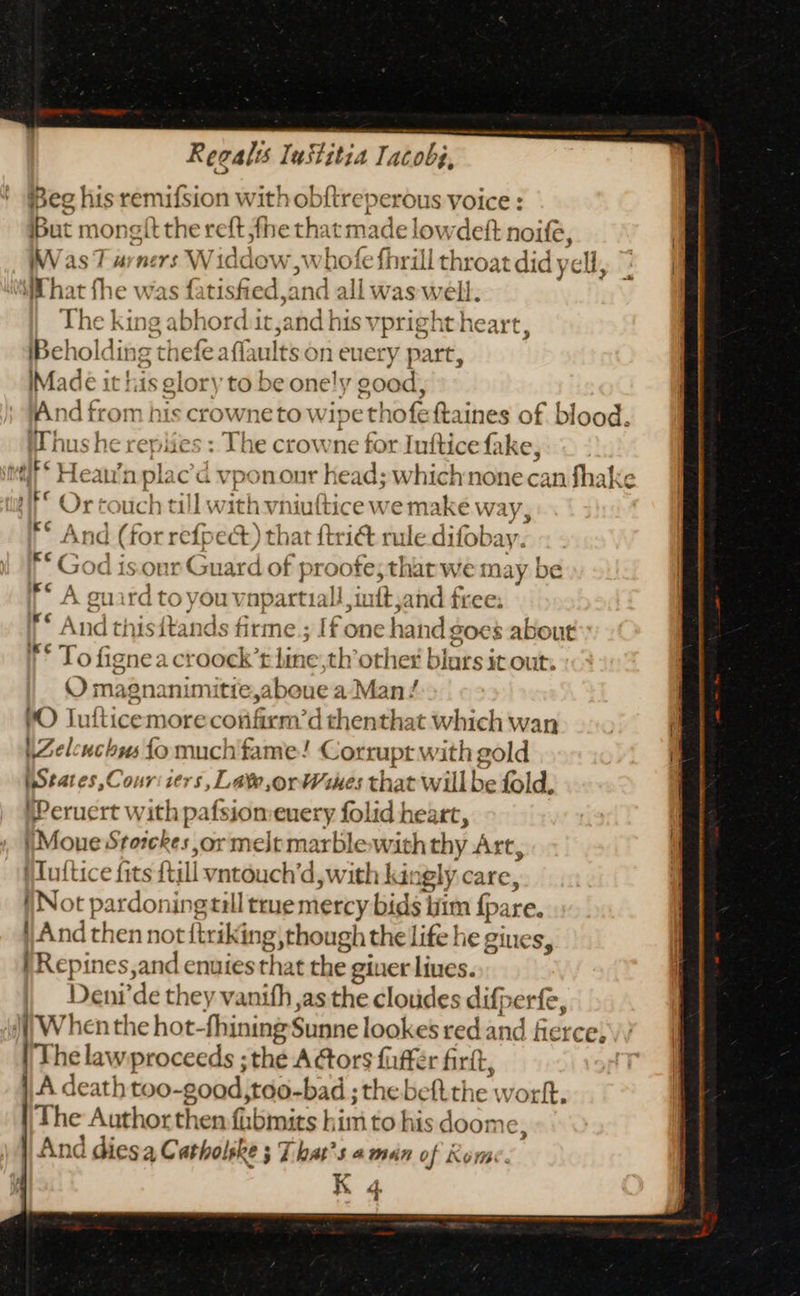 Regalis Iuſtitia Iacobi,
Beg his remiſsion with obſtreperous voice:
But mongſt the reſt ſhe that made lowdeſt noiſe,
Was Turners Widdow, whoſe ſhrill throat did yell,
That ſhe was ſatisfied, and all was well.
The king abhord it, and his vpright heart,
Beholding theſe aſſaults on euery part,
Made it his glory to be onely good,
And from his crowne to wipe thoſe ſtaines of blood.
Thus he replies: The crowne for Iuſtice ſake,
“ Heau'n plac'd vpon our head; which none can ſhake
“ Or touch till with vniuſtice we make way,
“ And (for reſpect) that ſtrict rule diſobay.
“ God is our Guard of proofe, that we may be
“ A guard to you vnpartiall, iuſt, and free.
“ And this ſtands firme; If one hand goes about
“ To ſigne a croock't line, th'other blurs it out.
O magnanimitie, aboue a Man!
O Iuſtice more confirm'd then that which wan
Zeleuchus ſo much fame! Corrupt with gold
States, Courtiers, Law, or Wines that will be ſold,
Peruert with paſsion euery ſolid heart,
Moue Stoickes, or melt marble with thy Art,
Iuſtice ſits ſtill vntouch'd, with kingly care,
Not pardoning till true mercy bids him ſpare.
And then not ſtriking, though the life he giues,
Repines, and enuies that the giuer liues.
Deni'de they vaniſh, as the cloudes diſperſe,
When the hot-ſhining Sunne lookes red and fierce,
The law proceeds; the Actors ſuffer firſt,
A death too-good, too-bad; the beſt the worſt.
The Author then ſubmits him to his doome,
And dies a Catholike; That's a man of Rome.
K 4